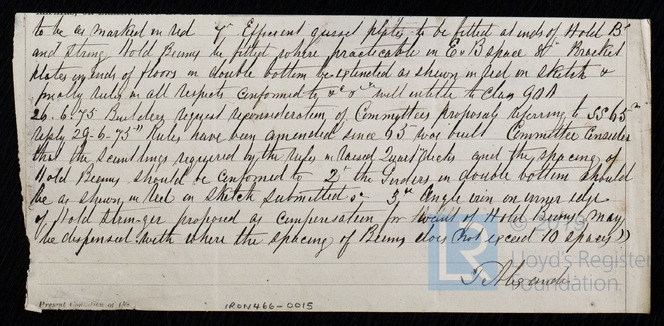 to be as marked in red 7" Efficient gusset plates to be fitted at ends of Hold Bs
and string Hold Beams be fitted where practicable in E & B space 8th Bracket
plates in ends of floors in double bottom be extended as shewn in red on sketch &
finally rules in all respects conformed to &c &c will entitle to class 90A
26.6.75 Builders request reconsideration of Committees proposals referring to SS 65
reply 29-6-75 " Rules have been amended since 65 was built Committee consider
that the scantlings required by the rules in raised Quarter decks and the spacing of
Hold Beams should be conformed to 2d the Girders in double bottom should
be as shewn in red on sketch submitted 3d Angle iron on inner edge
of Hold Stringer proposed as compensation for want of Hold Beams may
be dispensed with where the spacing of Beams does not exceed 10 spaces "
Present Condition of
IRON466-0015
© 2019
LR
Lloyd's Register
Foundation